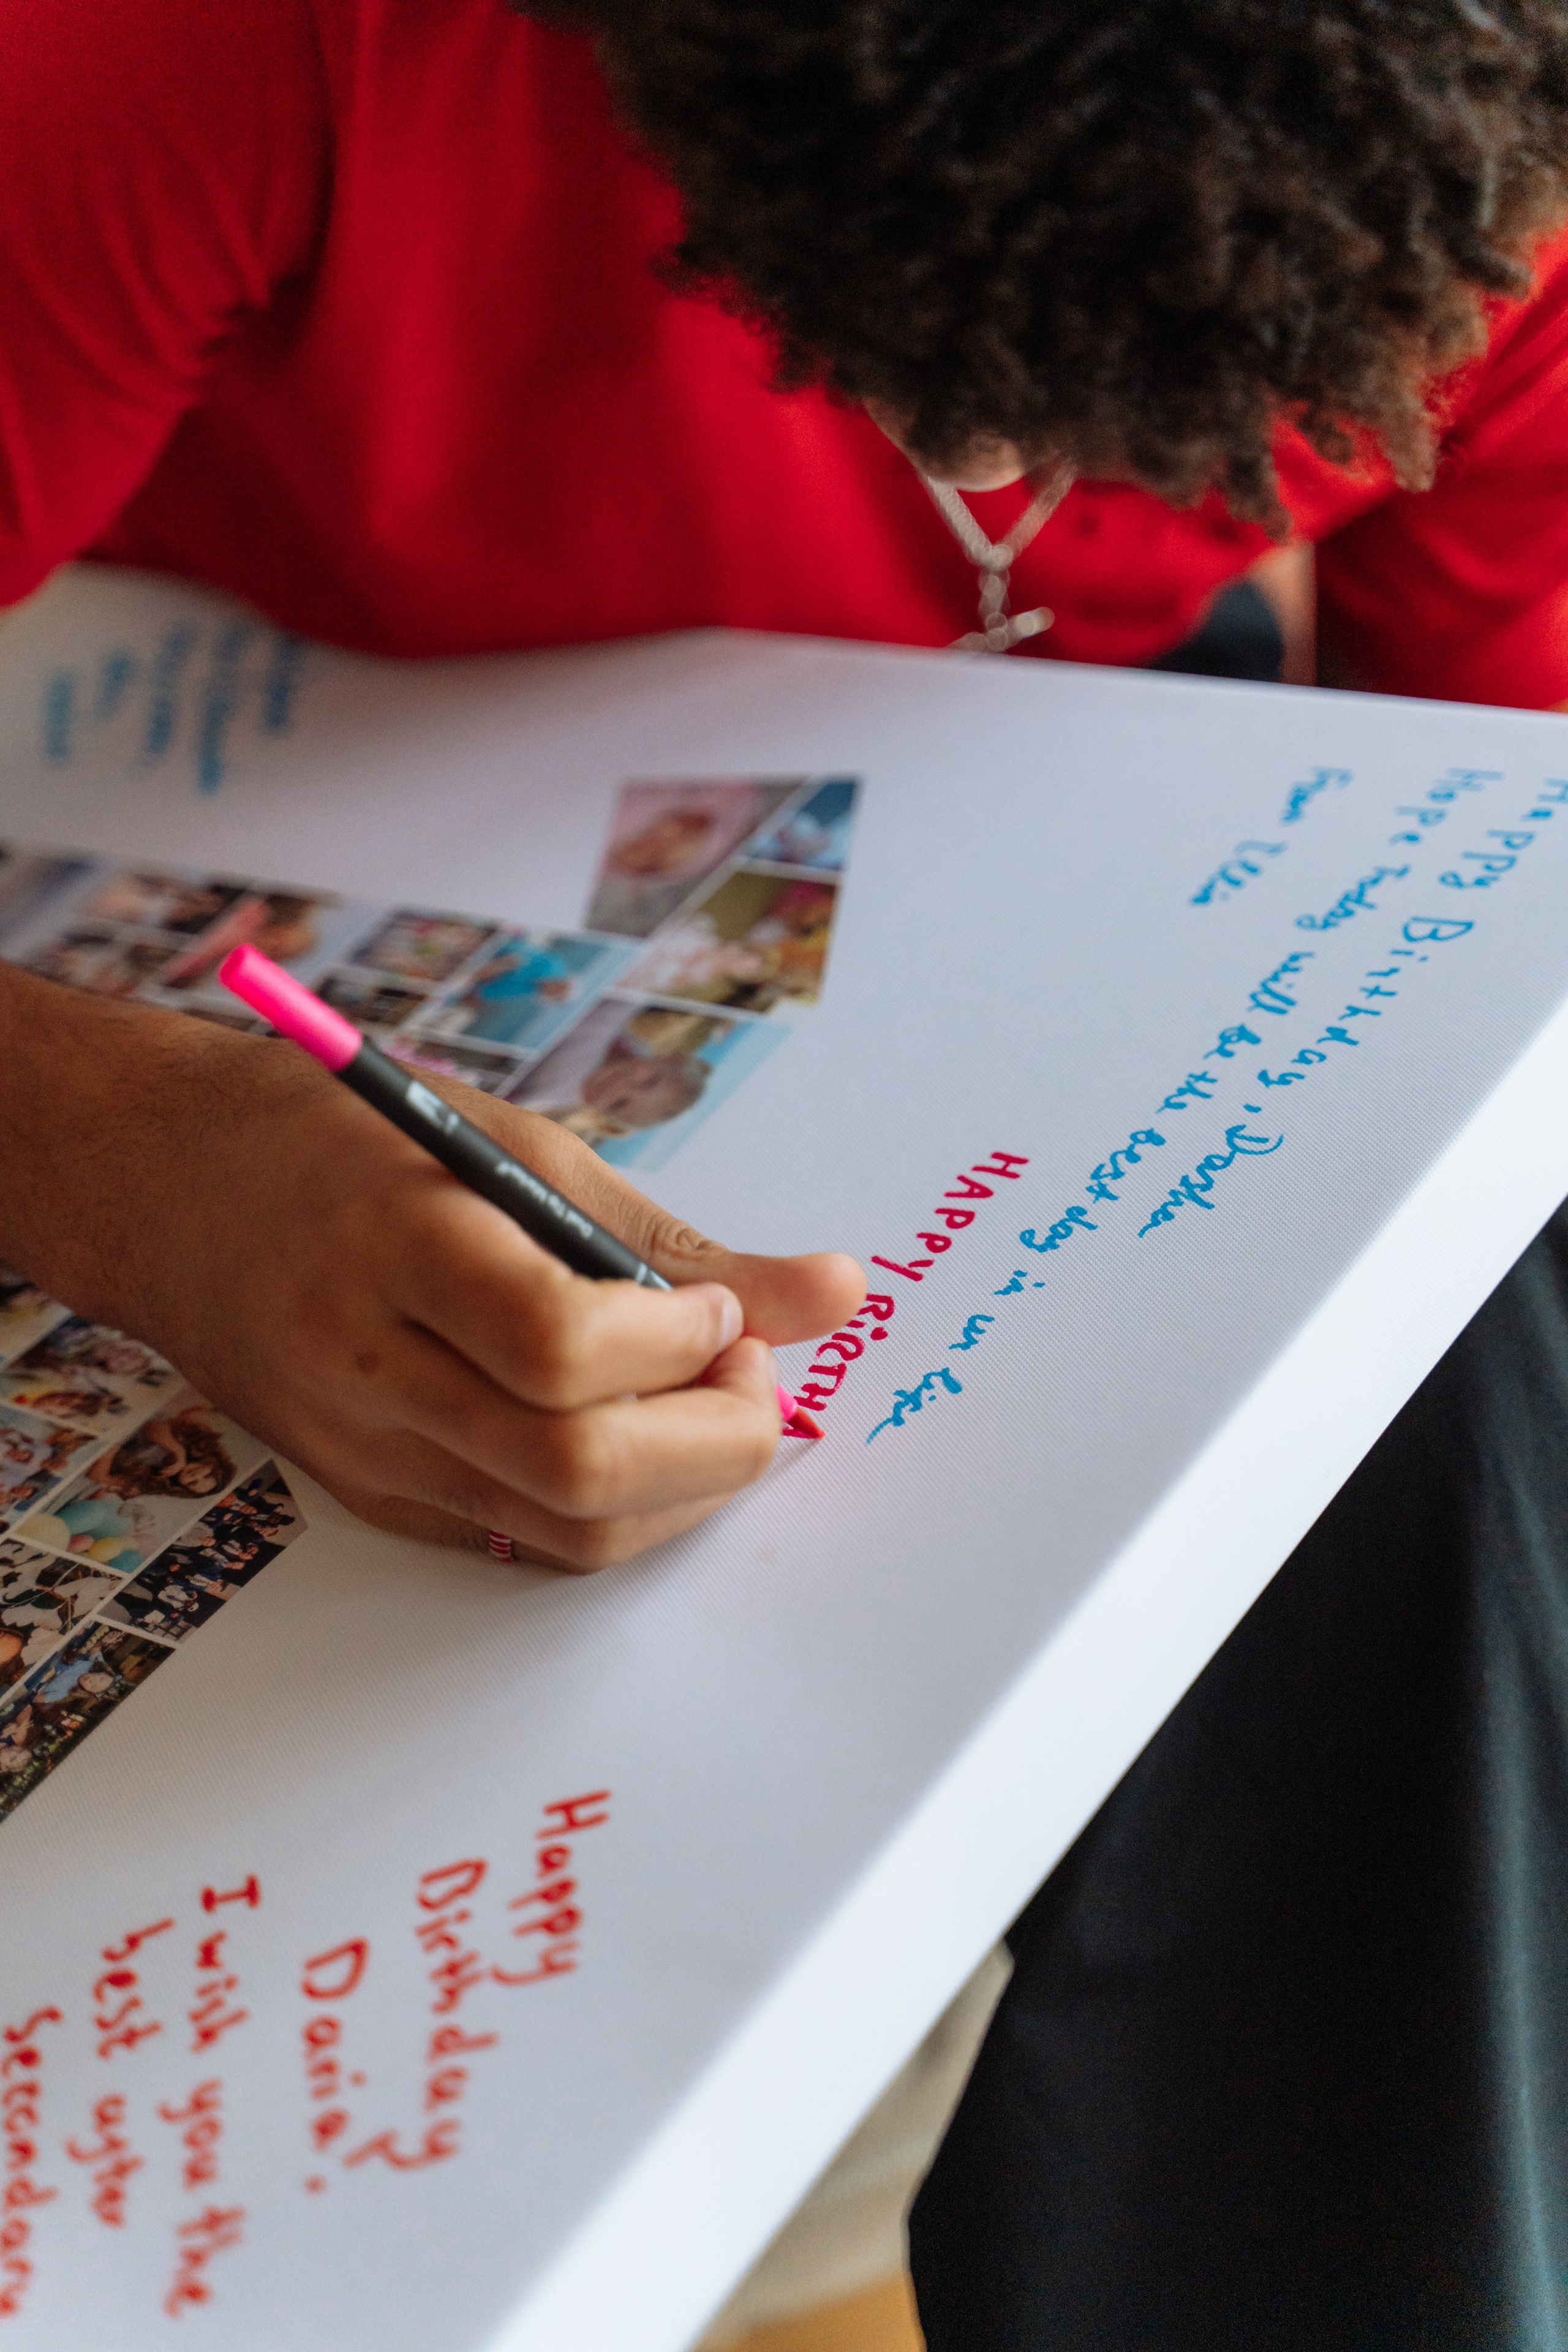 Happy Birthday, Dasha
Hope Today will be the best day in ur life
From
HAPPY BiRTH
Happy
Birthday
Daria.
I wish you the
best after
Secondary